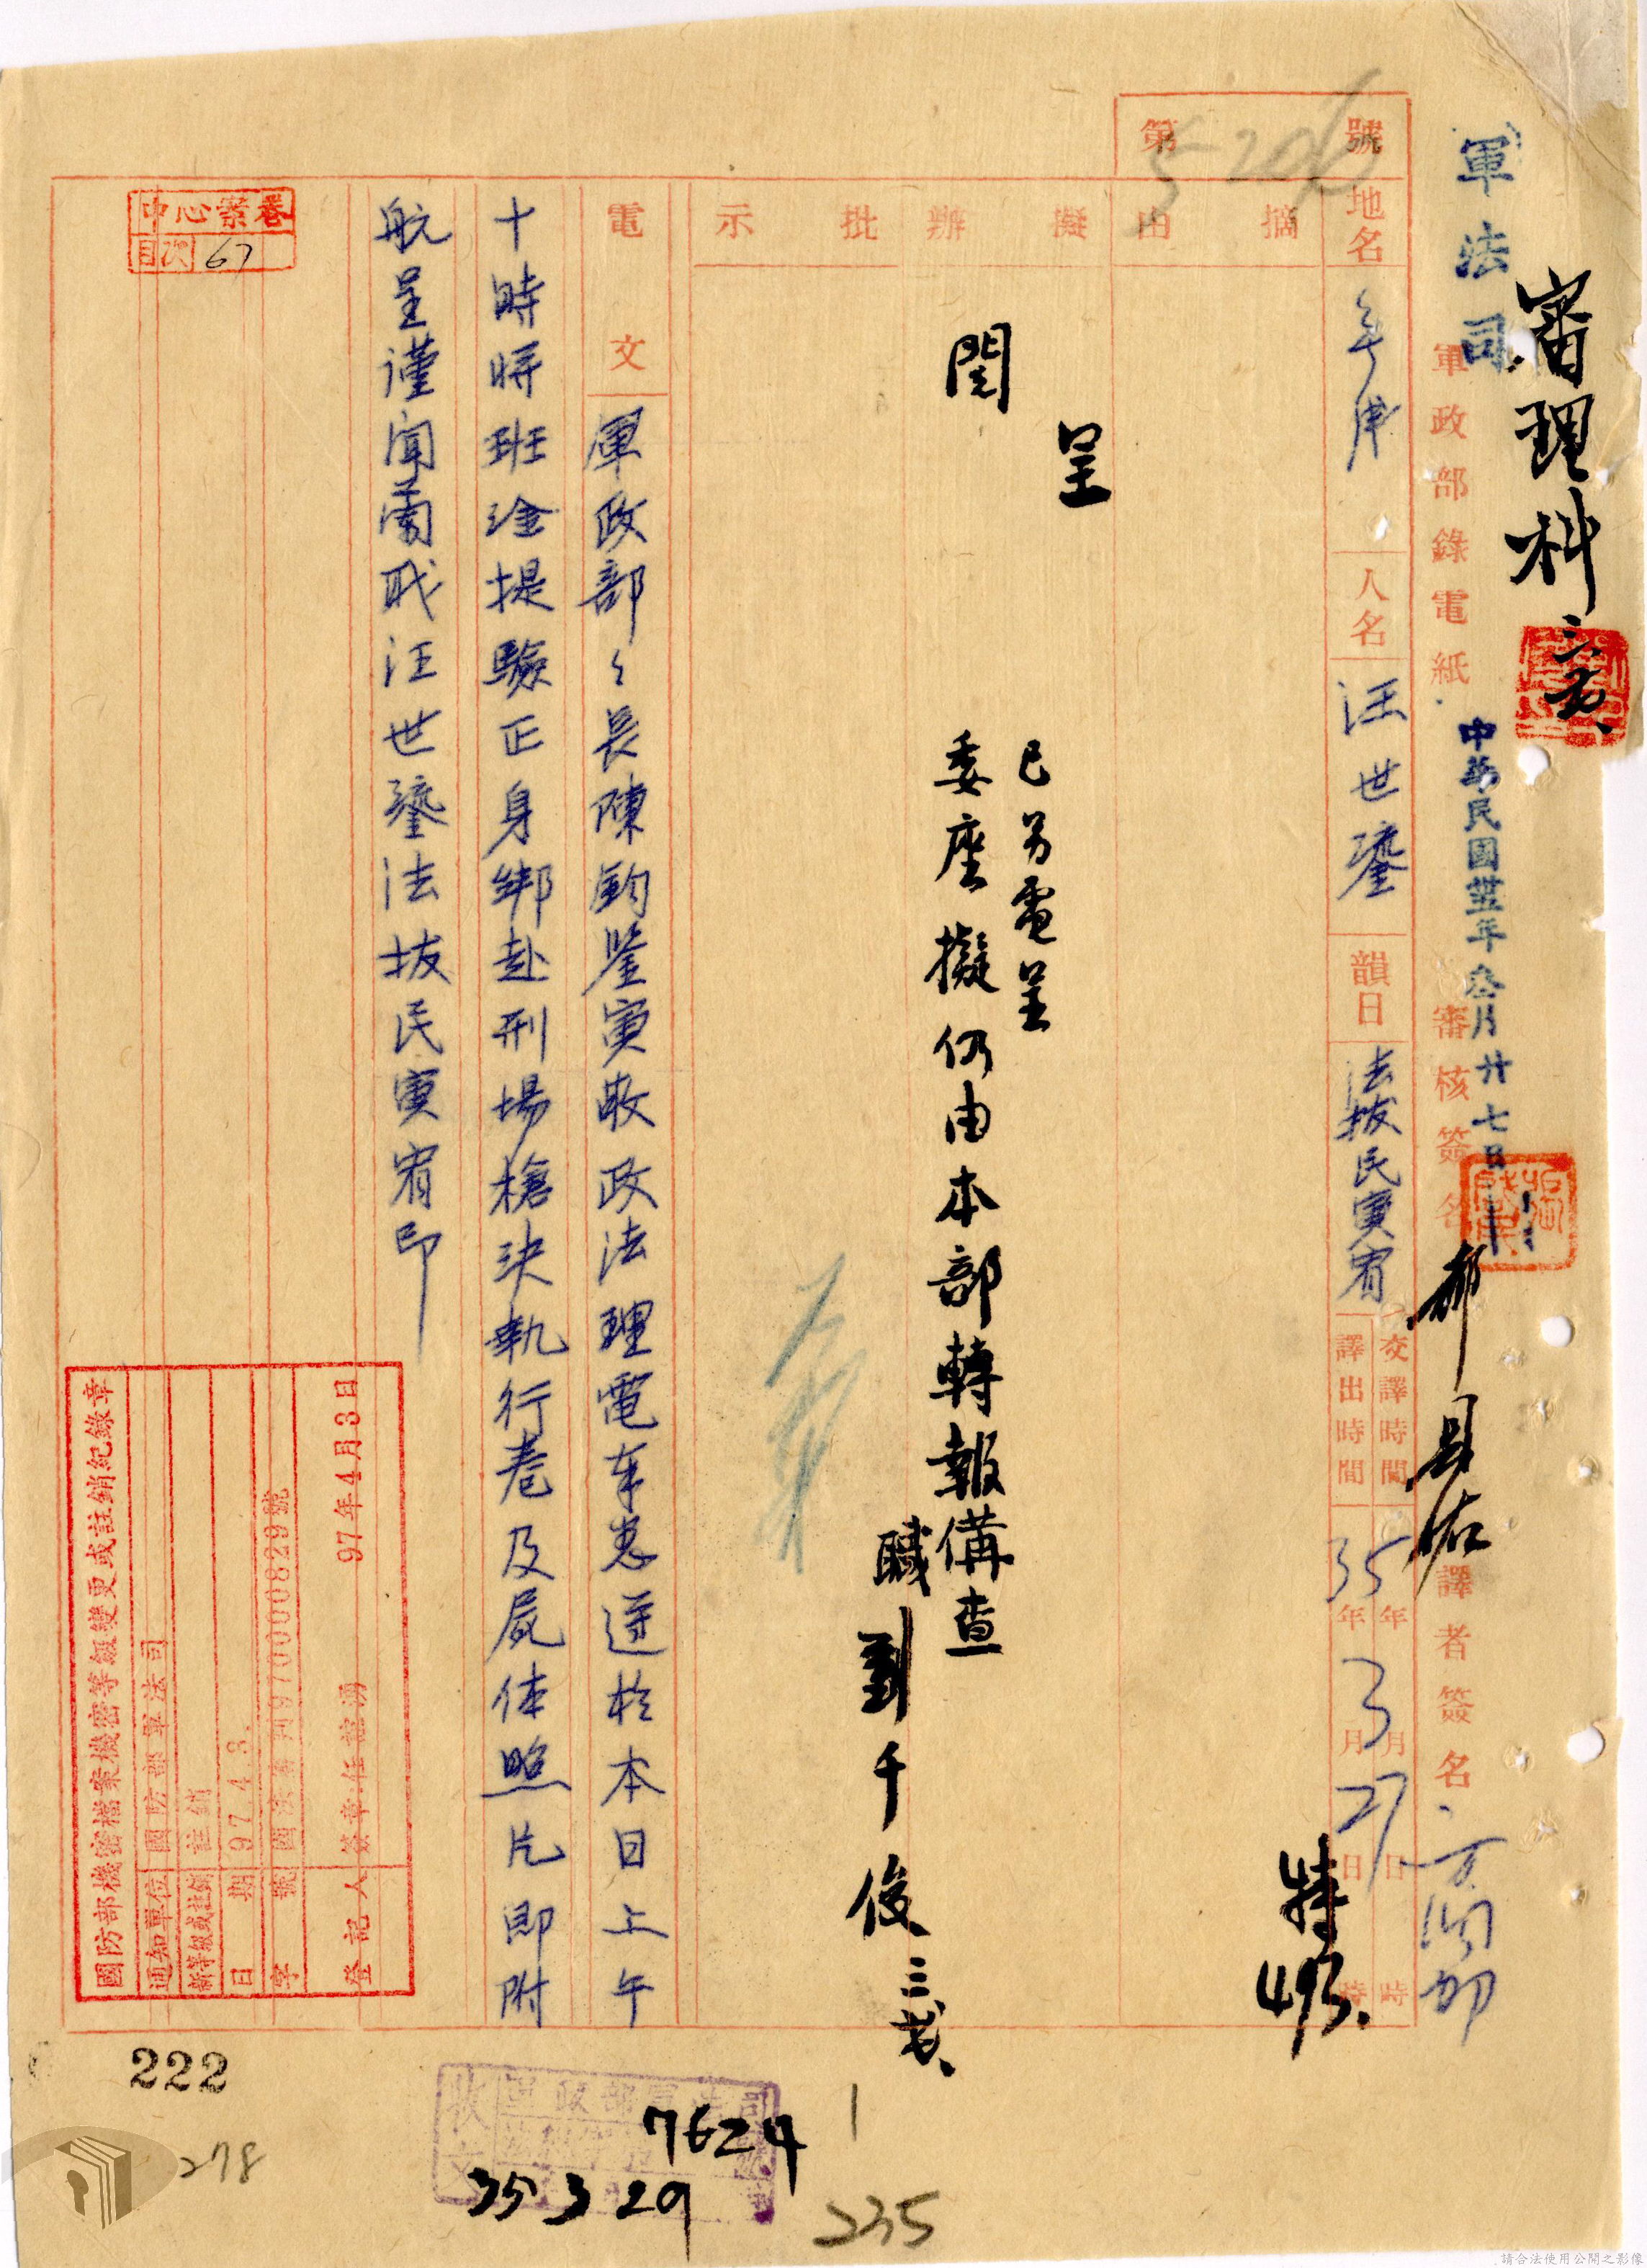 審理科
軍法司
中華民國卅五年叁月廿七日
軍政部錄電紙
審核簽名
譯者簽名
第 號
5206
地名
人名 汪世鎏
韻日 法拔民寅宥
交譯時間 年 月 日 時
譯出時間 35年3月27日 時
摘由
擬辦
批示
呈
閱
已另電呈
委座擬仍由本部轉報備查
職劉千俊
電文
軍政部々長陳鈞鑒寅敬政法理電奉悉遵於本日上午
十時將班淦提驗正身綁赴刑場槍決執行卷及屍体照片即附
航呈謹聞兼職汪世鎏法拔民寅宥印
中心案卷
目次 67
國防部機密檔案機密等級變更或註銷紀錄章
通知單位 國防部軍法司
新等級或註銷 註銷
日期 97.4.3.
字號 國法 字第9700000829號
登記人 簽章 97年4月3日
222
278
收文
軍政部軍法司
7624
35 3 29
235
請合法使用公開之影像